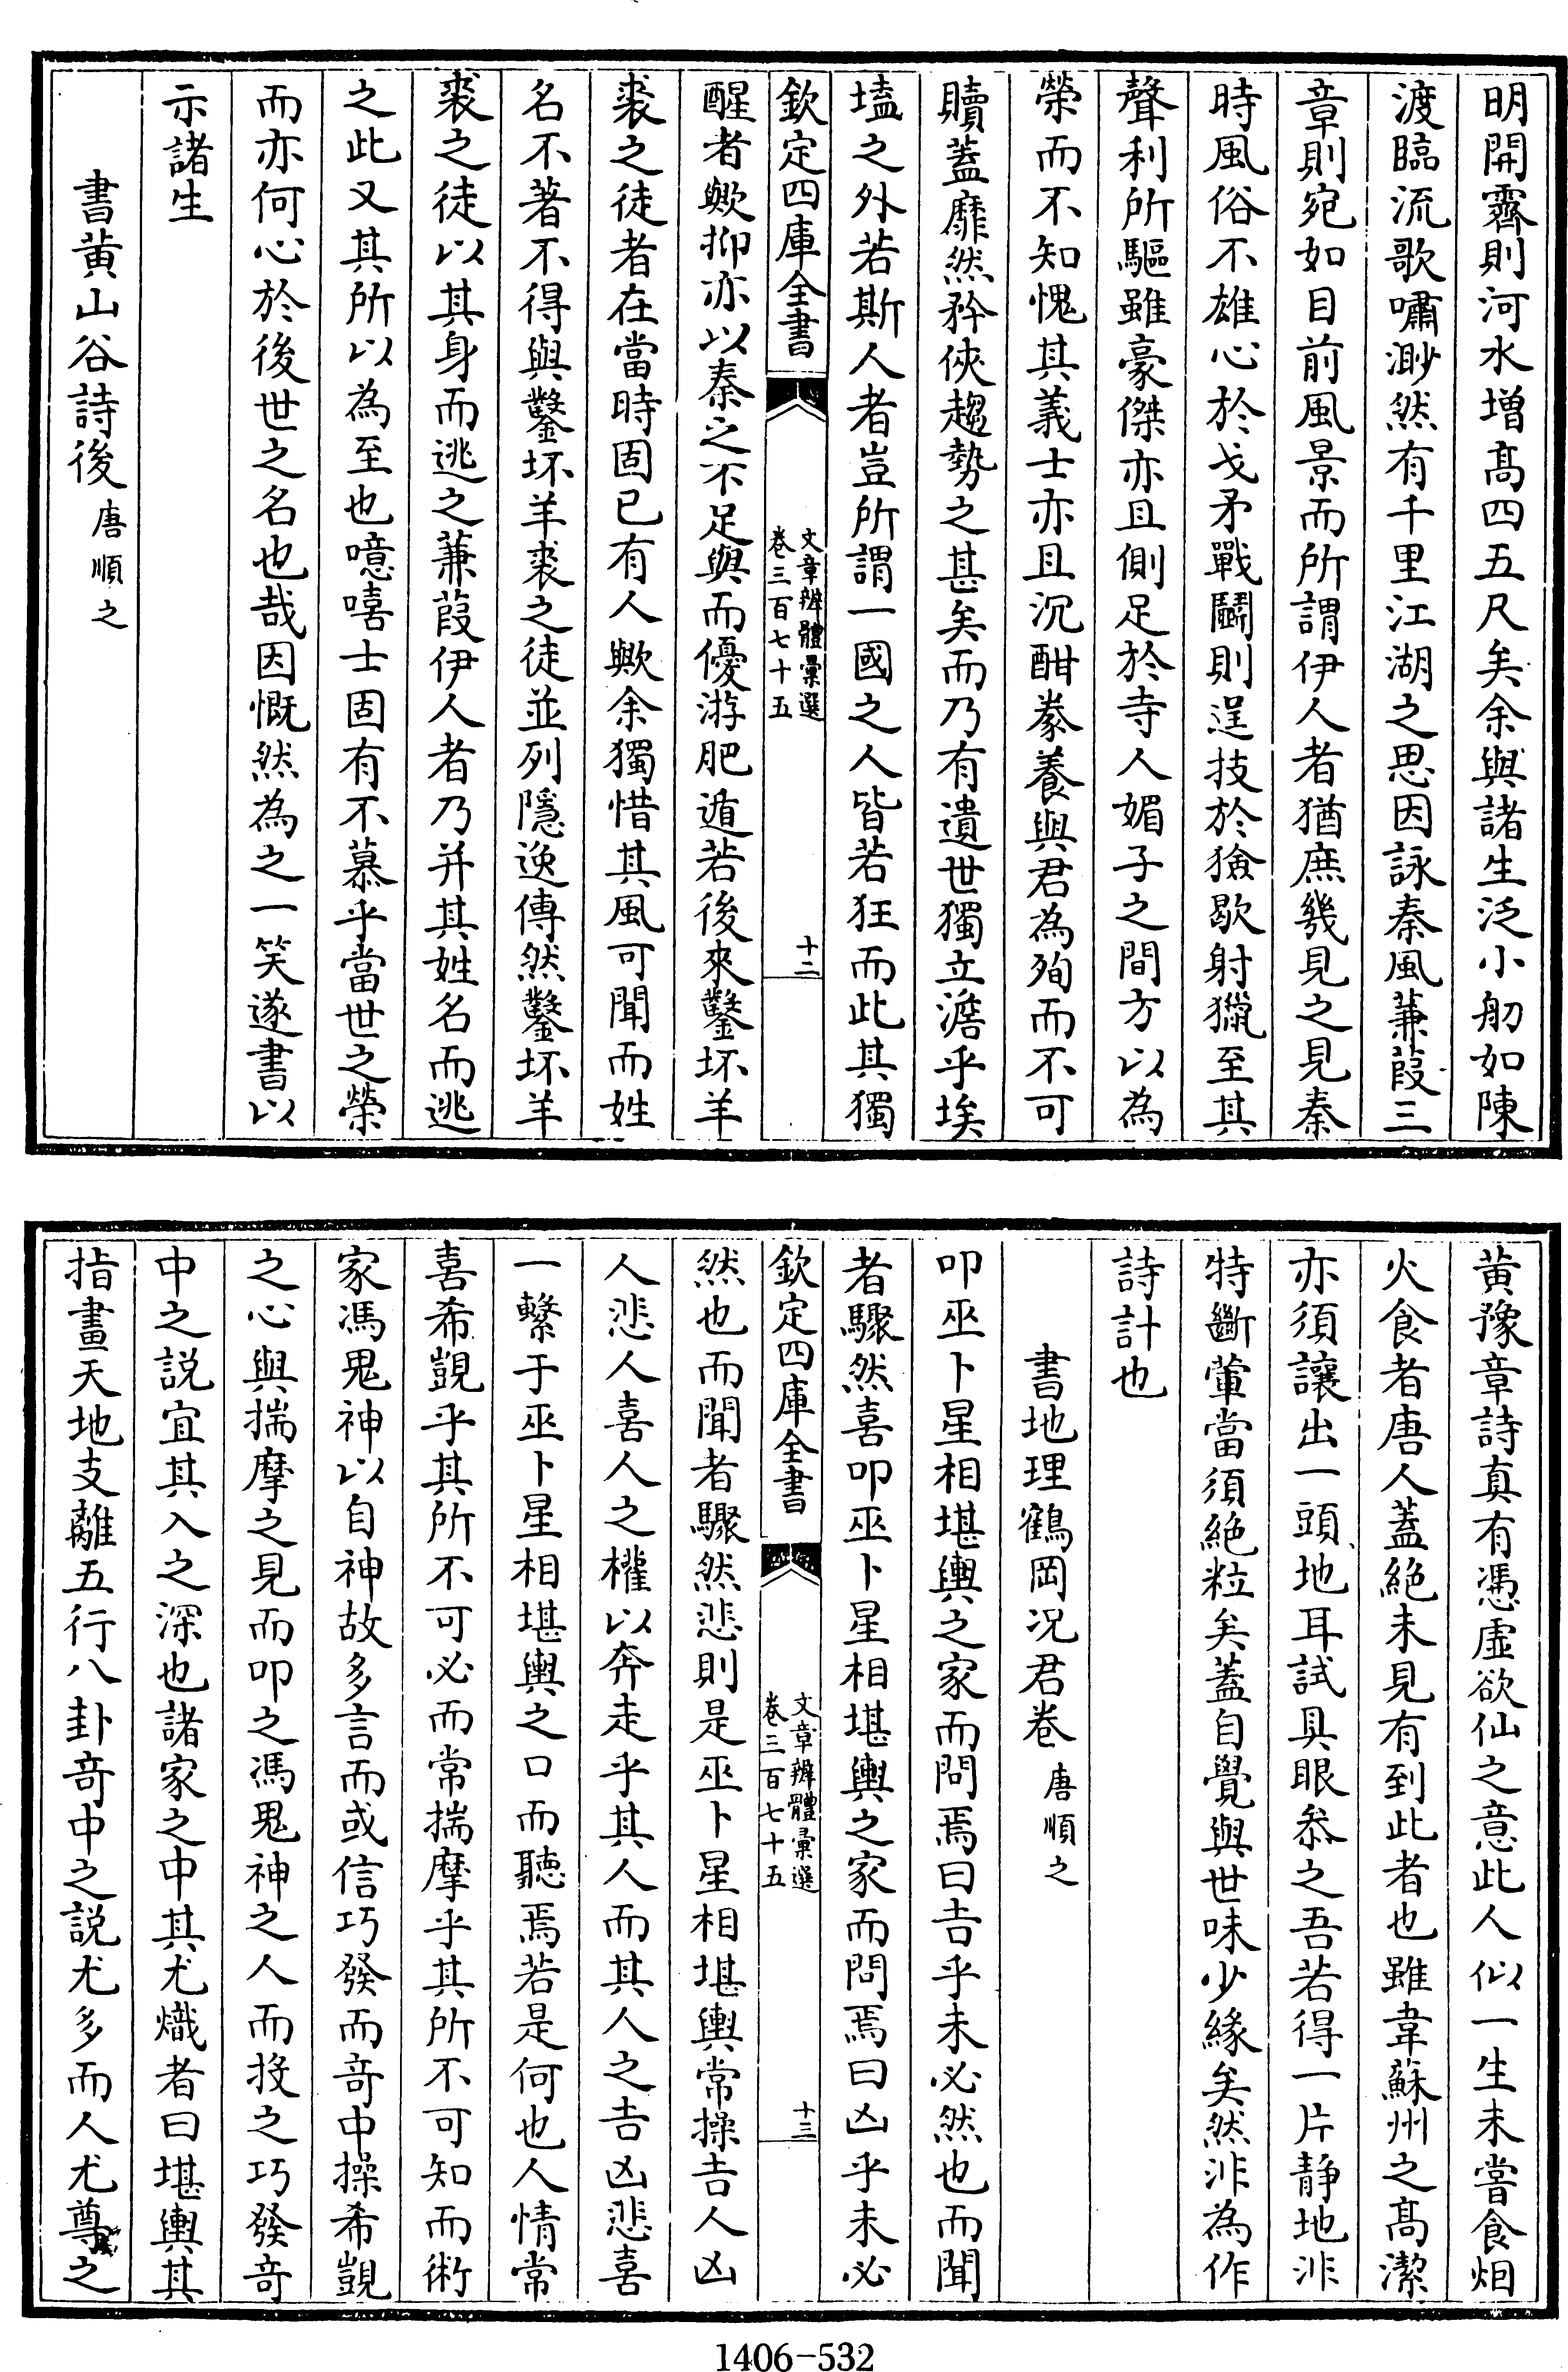 明開霽則河水增髙四五尺矣余與諸生泛小舠如陳
渡臨流歌嘯渺然有千里江湖之思因詠秦風蒹葭三
章則宛如目前風景而所謂伊人者猶庶幾見之見秦
時風俗不雄心於戈矛戰鬬則逞技於獫歇射獵至其
聲利所驅雖豪傑亦且側足於寺人媚子之間方以為
榮而不知愧其義士亦且沉酣豢養與君為殉而不可
贖蓋靡然矜俠趨勢之甚矣而乃有遺世獨立澹乎埃
壒之外若斯人者豈所謂一國之人皆若狂而此其獨
欽定四庫全書
文章辨體彚選
卷三百七十五
十二
醒者歟抑亦以秦之不足與而優游肥遁若後來鑿坏羊
裘之徒者在當時固已有人歟余獨惜其風可聞而姓
名不著不得與鑿坏羊裘之徒並列隱逸傳然鑿坏羊
裘之徒以其身而逃之蒹葭伊人者乃并其姓名而逃
之此又其所以為至也噫嘻士固有不慕乎當世之榮
而亦何心於後世之名也哉因慨然為之一笑遂書以
示諸生
書黄山谷詩後 唐順之
黄豫章詩真有憑虚欲仙之意此人似一生未嘗食烟
火食者唐人蓋絶未見有到此者也雖韋蘇州之髙潔
亦須讓出一頭地耳試具眼叅之吾若得一片静地非
特斷葷當須絶粒矣蓋自覺與世味少緣矣然非為作
詩計也
書地理鶴岡况君卷 唐順之
叩巫卜星相堪輿之家而問焉曰吉乎未必然也而聞
者驟然喜叩巫卜星相堪輿之家而問焉曰凶乎未必
欽定四庫全書
文章辨體彚選
卷三百七十五
十三
然也而聞者驟然悲則是巫卜星相堪輿常操吉人凶
人悲人喜人之權以奔走乎其人而其人之吉凶悲喜
一繫于巫卜星相堪輿之口而聽焉若是何也人情常
喜希覬乎其所不可必而常揣摩乎其所不可知而術
家馮鬼神以自神故多言而或信巧發而竒中操希覬
之心與揣摩之見而叩之馮鬼神之人而投之巧發竒
中之説宜其入之深也諸家之中其尤熾者曰堪輿其
指畫天地支離五行八卦竒中之説尤多而人尤尊之
1406-532